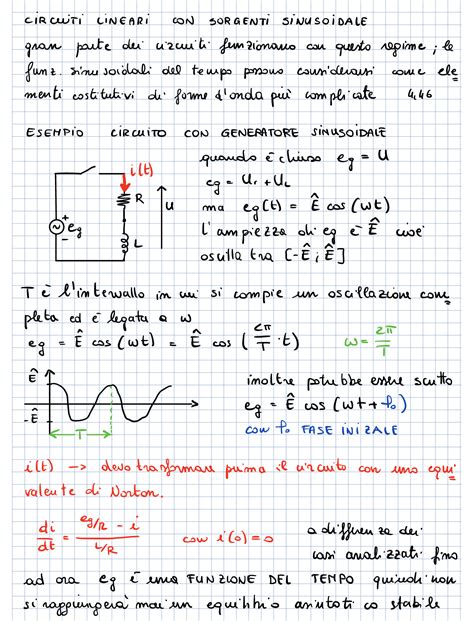 CIRCUITI LINEARI CON SORGENTI SINUSOIDALE
gran parte dei circuiti funzionano con questo regime; le
funz. sinusoidali del tempo possono considerarsi come ele
menti costitutivi di forme d'onda più complicate 4,46
ESEMPIO CIRCUITO CON GENERATORE SINUSOIDALE
quando è chiuso eg = U
eg = Ur + UL
ma eg(t) = Ê cos (wt)
l'ampiezza di eg è Ê cioè
oscilla tra [-Ê ; Ê]
i(t)
R
U
+
eg
-
L
T è l'intervallo in cui si compie un oscillazione com_
pleta ed è legata a w
eg = Ê cos (wt) = Ê cos ( 2π/T · t) w = 2π/T
Ê
-Ê
T
inoltre potrebbe essere scritto
eg = Ê cos (wt + φ₀)
con φ₀ FASE INIZALE
i(t) -> devo trasformare prima il circuito con uno equi_
valente di Norton.
di/dt = eg/R - i / L/R con i(0) = 0 a differenza dei
casi analizzati fino
ad ora eg è una FUNZIONE DEL TEMPO quindi non
si raggiungerà mai un equilibrio